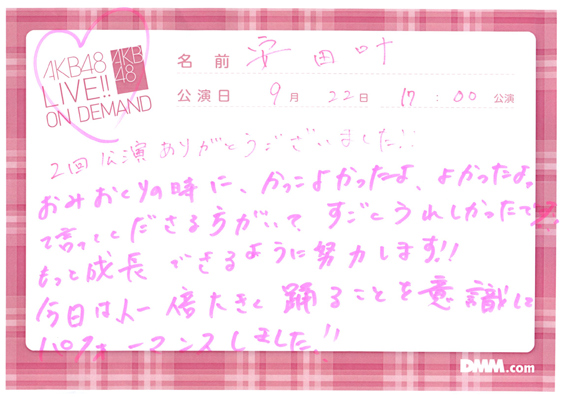 AKB48
LIVE!!
ON DEMAND
AKB
48
名前 安田叶
公演日 9月 22日 17:00 公演
2回公演ありがとうございました!!
おみおくりの時に、かっこよかったよ、よかったよっ
て言ってくださる方がいて すごくうれしかったです!!
もっと成長できるように努力します!!
今日は人一倍大きく踊ることを意識して
パフォーマンスしました!!
DMM.com